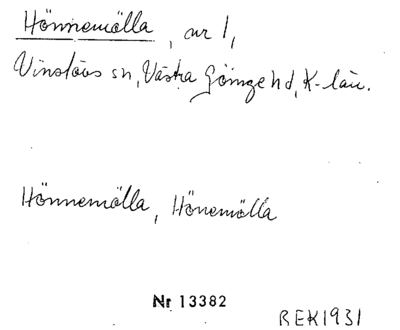 Hönnemölla, nr 1,
Vinslövs sn, Västra Göinge hd, K-län.
Hönnemölla, Hönemölla
Nr 13382
REK1931